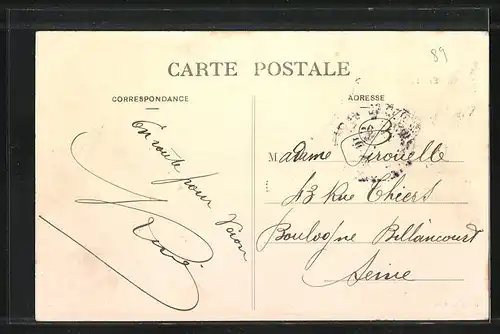 89
CARTE POSTALE
CORRESPONDANCE
ADRESSE
En route pour
Voiron
René
B
Madame Girouelle
43 Rue Thiers
Boulogne Billancourt
Seine